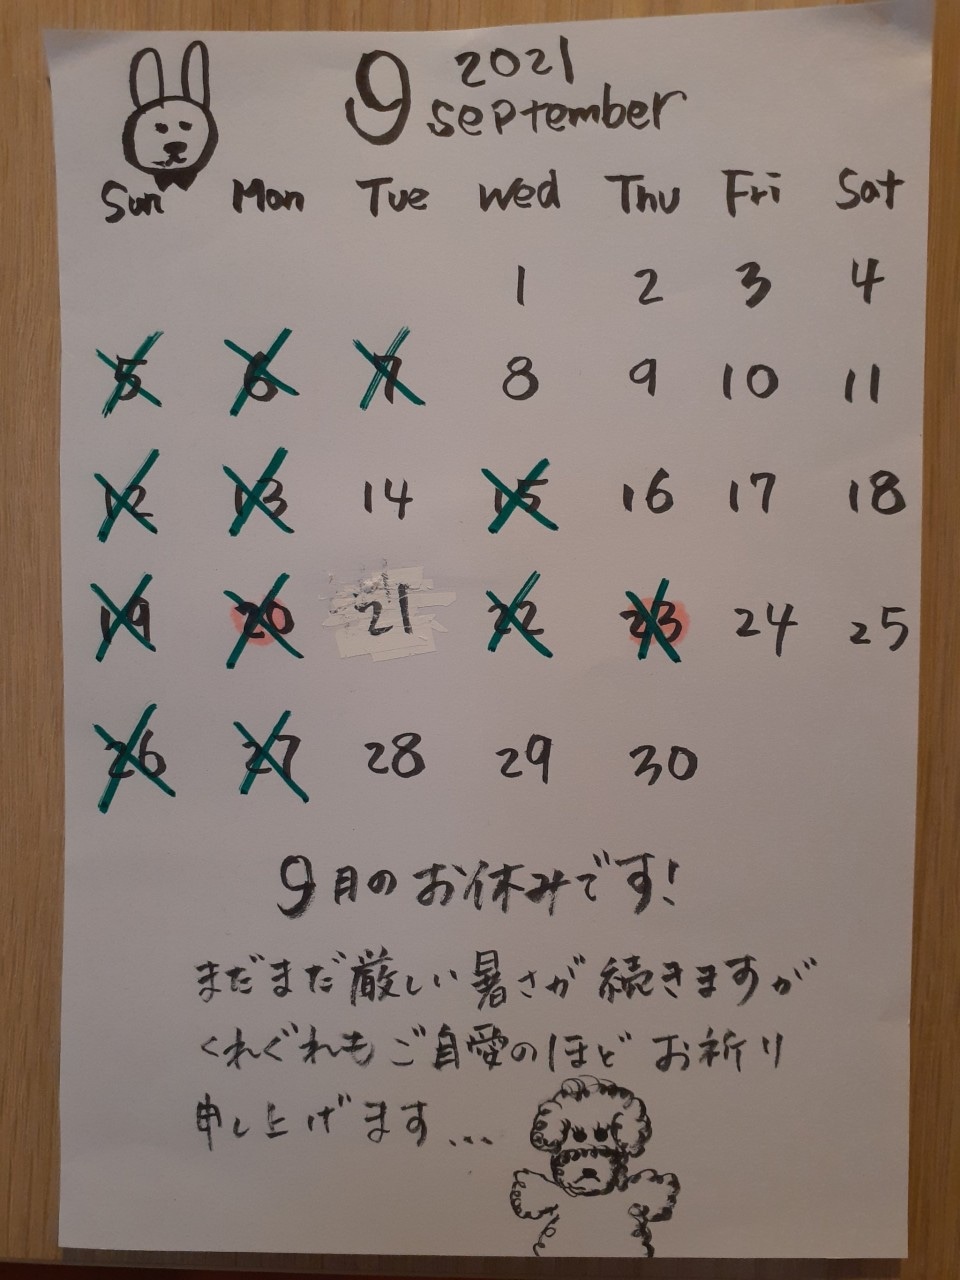 9 2021
september
Sun Mon Tue Wed Thu Fri Sat
1 2 3 4
5 6 7 8 9 10 11
12 13 14 15 16 17 18
19 20 21 22 23 24 25
26 27 28 29 30
9月のお休みです!
まだまだ厳しい暑さが続きますが
くれぐれもご自愛のほどお祈り
申し上げます...